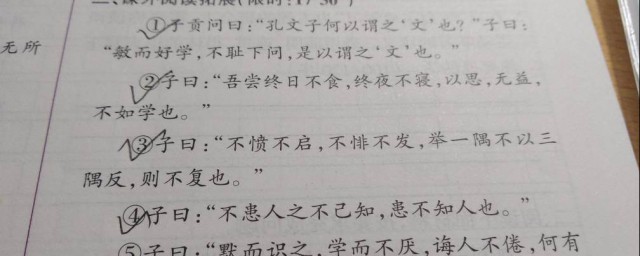 二、课外阅读拓展(限时:17′30″)
①子贡问曰:“孔文子何以谓之‘文’也?”子曰:
无所
“敏而好学,不耻下问,是以谓之‘文’也。”
②子曰:“吾尝终日不食,终夜不寝,以思,无益,
不如学也。”
③子曰:“不愤不启,不悱不发,举一隅不以三
隅反,则不复也。”
④子曰:“不患人之不己知,患不知人也。”
⑤子曰:“默而识之,学而不厌,诲人不倦,何有